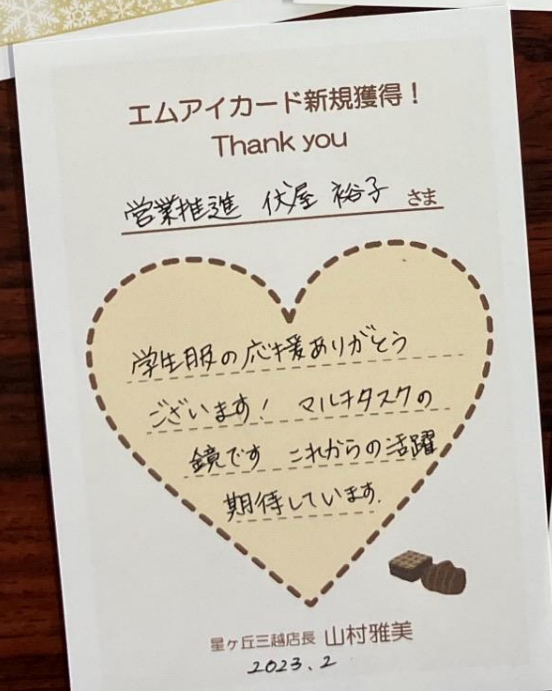 エムアイカード新規獲得！
Thank you
営業推進 伏屋 裕子 さま
学生服の応援ありがとう
ございます！ マルチタスクの
鏡です これからの活躍
期待しています.
星ヶ丘三越店長 山村雅美
2023.2